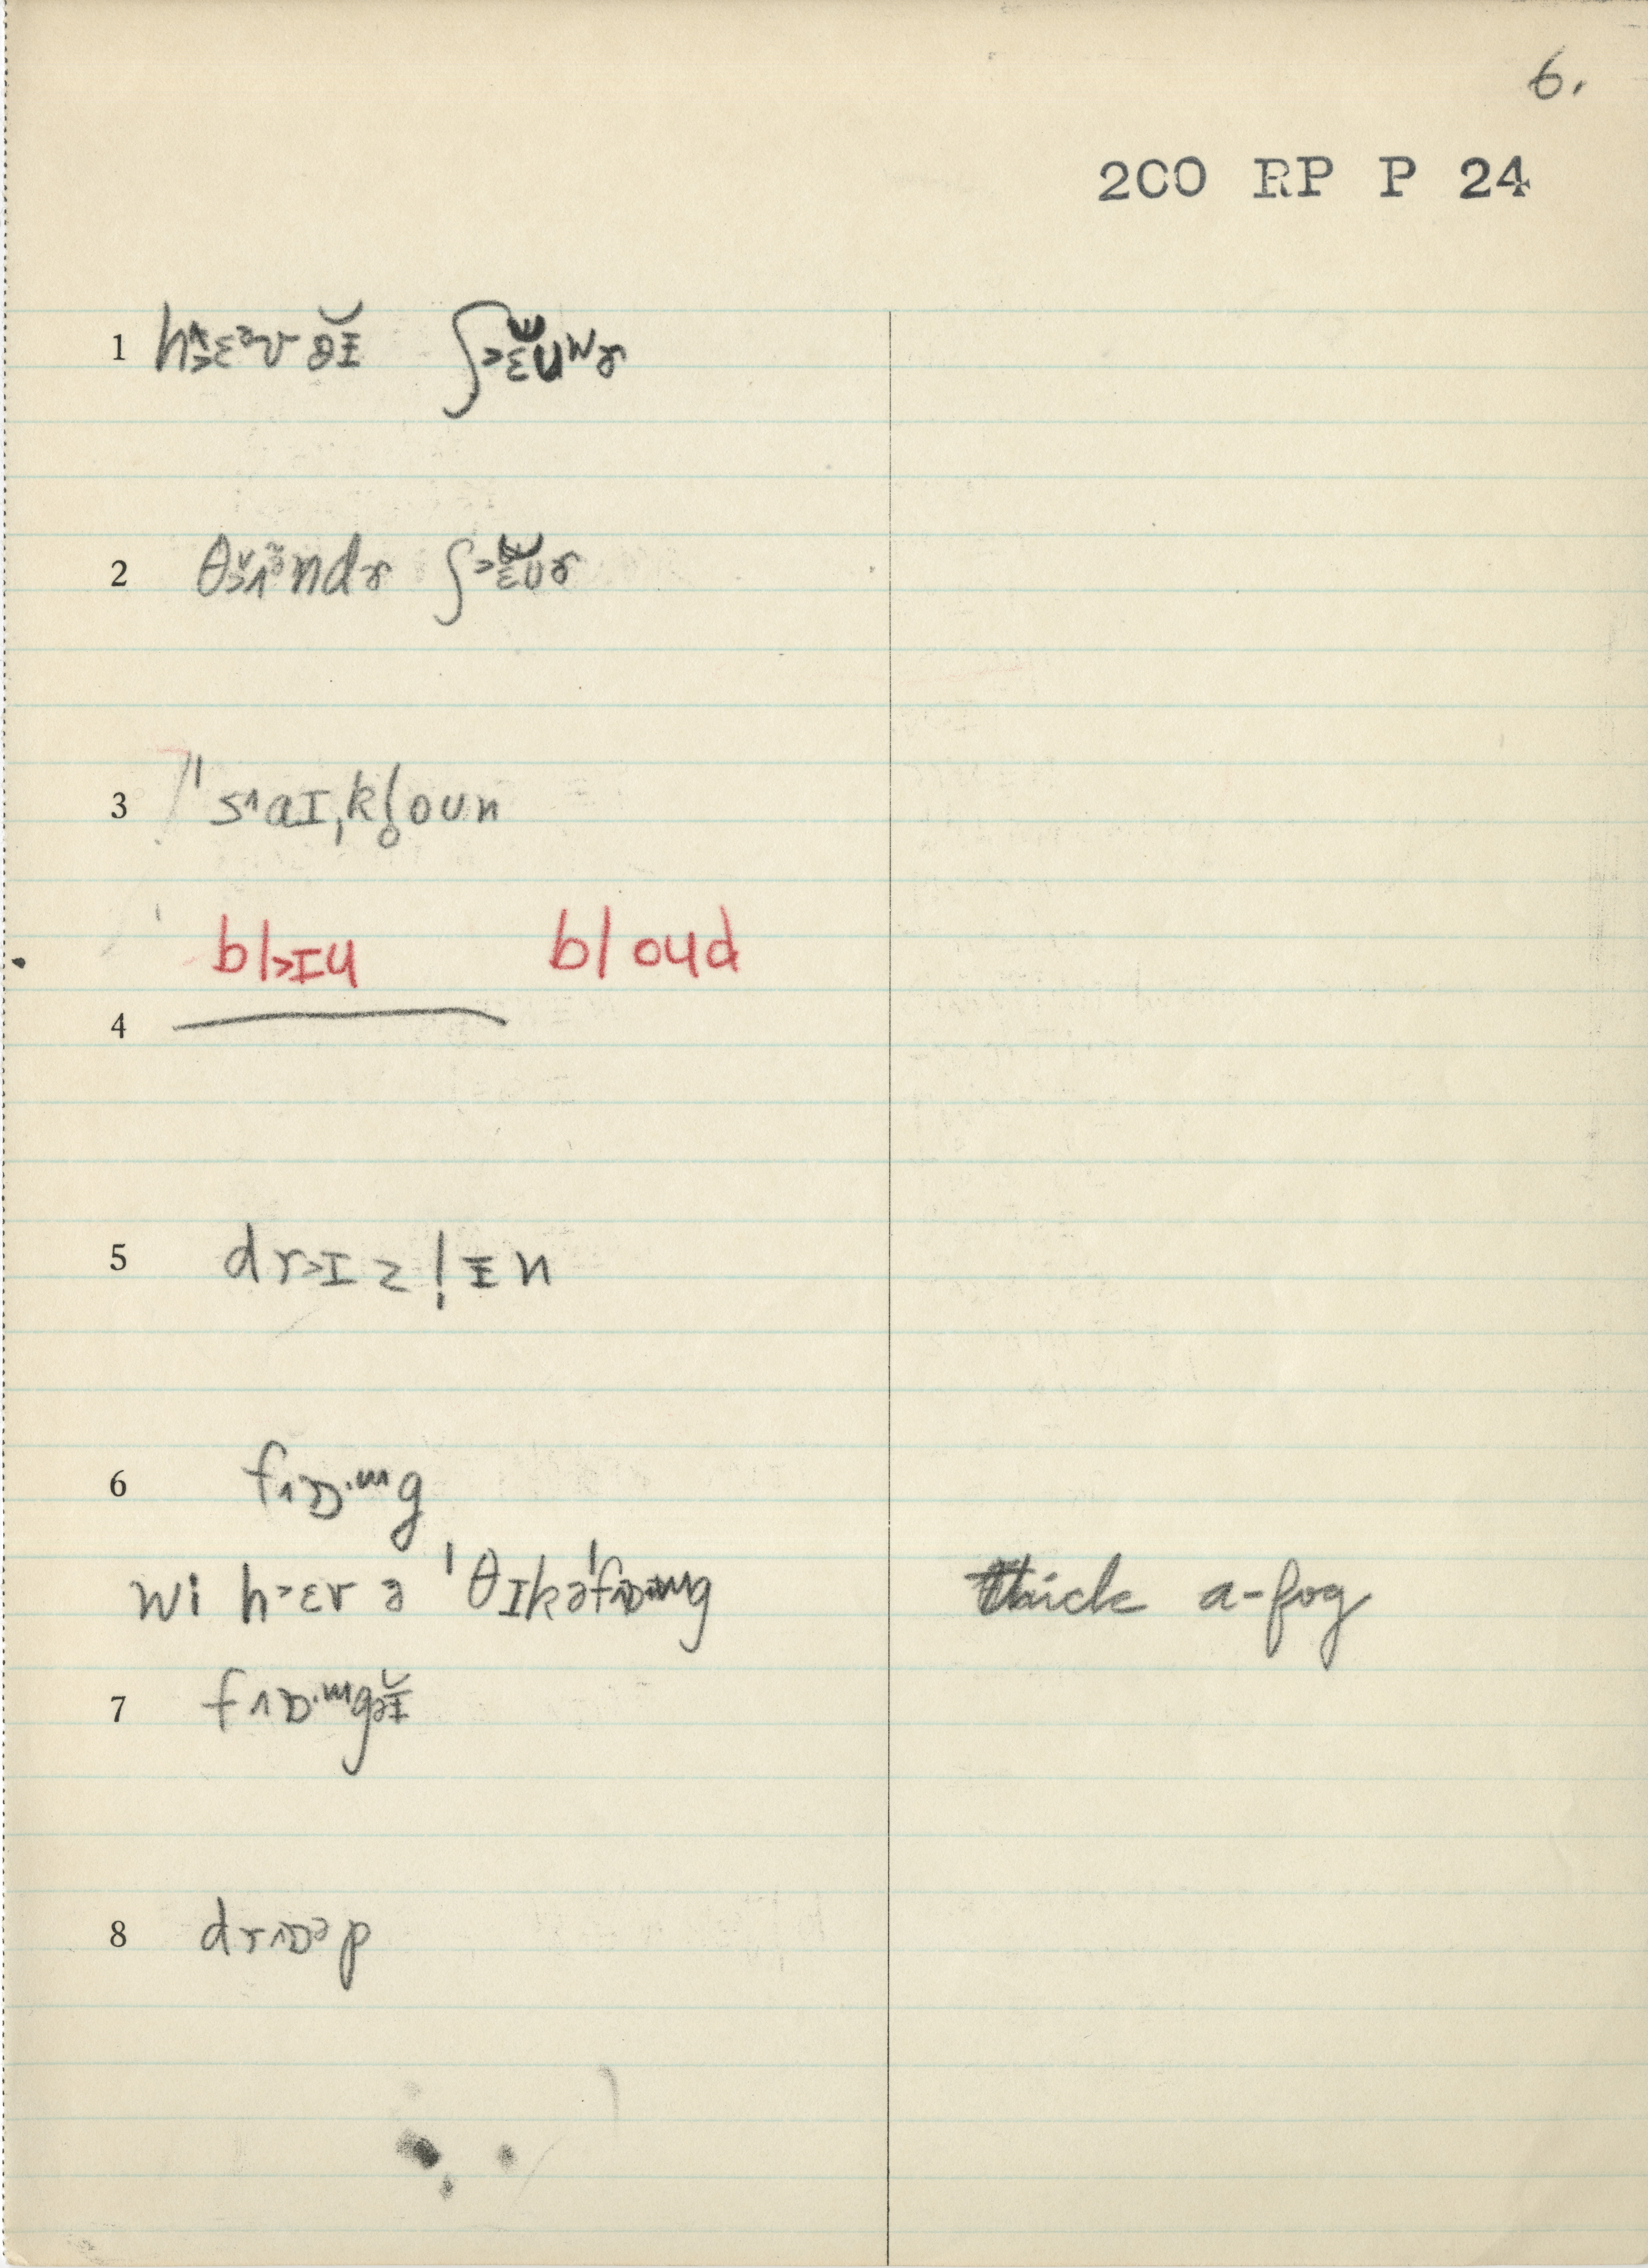 6.
200 RP P 24
1 h˃ɛᵊv ə̆ɪ̵ ʃ˃ɛ̆ʊʷɚ
2 θ˃ʌᵌndɚ ʃ˃ɛ̆ʊɚ
3 's˄aɪˌkl̥oun
bl˃ɪu bloud
4
5 dr˃ɪzl̩ɪ̵n
6 f˄ɒ·ɯg
wi h˃ɛv ə 'θɪkə'f˄ɒ·ɯg thick a-fog
7 f˄ɒ·ɯgə̆ɪ̵
8 dr˄ɒᵊp